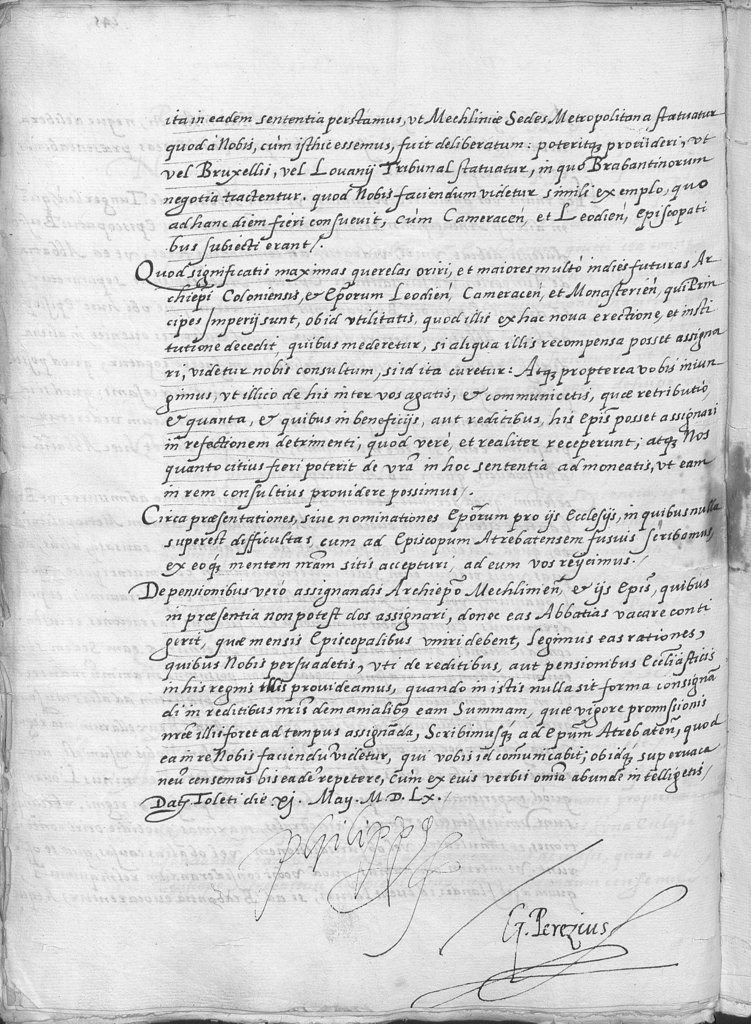 ita in eadem sententia perstamus, vt Mechliniæ Sedes Metropolitana statuatur
quod à Nobis, cùm isthic essemus, fuit deliberatum: poteritq; prouideri, vt
vel Bruxellis, vel Louanij Tribunal statuatur, in quo Brabantinorum
negotia tractentur. quod Nobis faciendum videtur simili exemplo, quo
ad hanc diem fieri consueuit, cùm Cameraceñ, et Leodieñ, Episcopati
bus subiecti erant/.
Quod significatis maximas querelas oriri, et maiores multò indies futuras Ar-
chiepi Coloniensis, & Eporum Leodieñ, Cameraceñ, et Monasterieñ, qui Prin
cipes Imperij sunt, ob id vtilitatis, quod illis ex hac noua erectione, et insti
tutione decedit, quibus mederetur, si aliqua illis recompensa posset assigna
ri, videtur nobis consultum, si id ita curetur: Atq; propterea vobis iniun
gimus, vt illico de his inter vos agatis, & communicetis, quæ retributio,
& quanta, & quibus in beneficijs, aut reditibus, his Epis posset assignari
in refectionem detrimenti, quod verè, et realiter receperunt; atq; Nos
quanto citius fieri poterit de vrã in hoc sententia admoneatis, vt eam
in rem consultius prouidere possimus/.
Circa præsentationes, siue nominationes Eporum pro ijs Ecclesijs, in quibus nulla
superest difficultas, cum ad Episcopum Atrebatensem fusius scribamus,
ex eoq; mentem nrãm sitis accepturi, ad eum vos reijcimus./
De pensionibus verò assignandis Archiepo Mechlinieñ, & ijs Epis, quibus
in præsentia non potest dos assignari, donec eas Abbatias vacare conti
gerit, quæ mensis Episcopalibus vniri debent, legimus eas rationes,
quibus Nobis persuadetis, vti de reditibus, aut pensionibus Ecclãsticis
in his regnis illis prouideamus, quando in istis nulla sit forma consignã
di in reditibus nris demanialibq eam Summam, quæ vigore promissionis
nræ illi foret ad tempus assignãda, Scribimusq; ad Epum Atrebateñ, quod
ea in re Nobis faciendu videtur, qui vobis id comunicabit; ob idq; superuaca
neu censemus his eade repetere, Cùm ex euis verbis omia abunde intelligetis/
Dat; Toleti die xj. Maij. M D. LX./
Philippq
G. Perezius